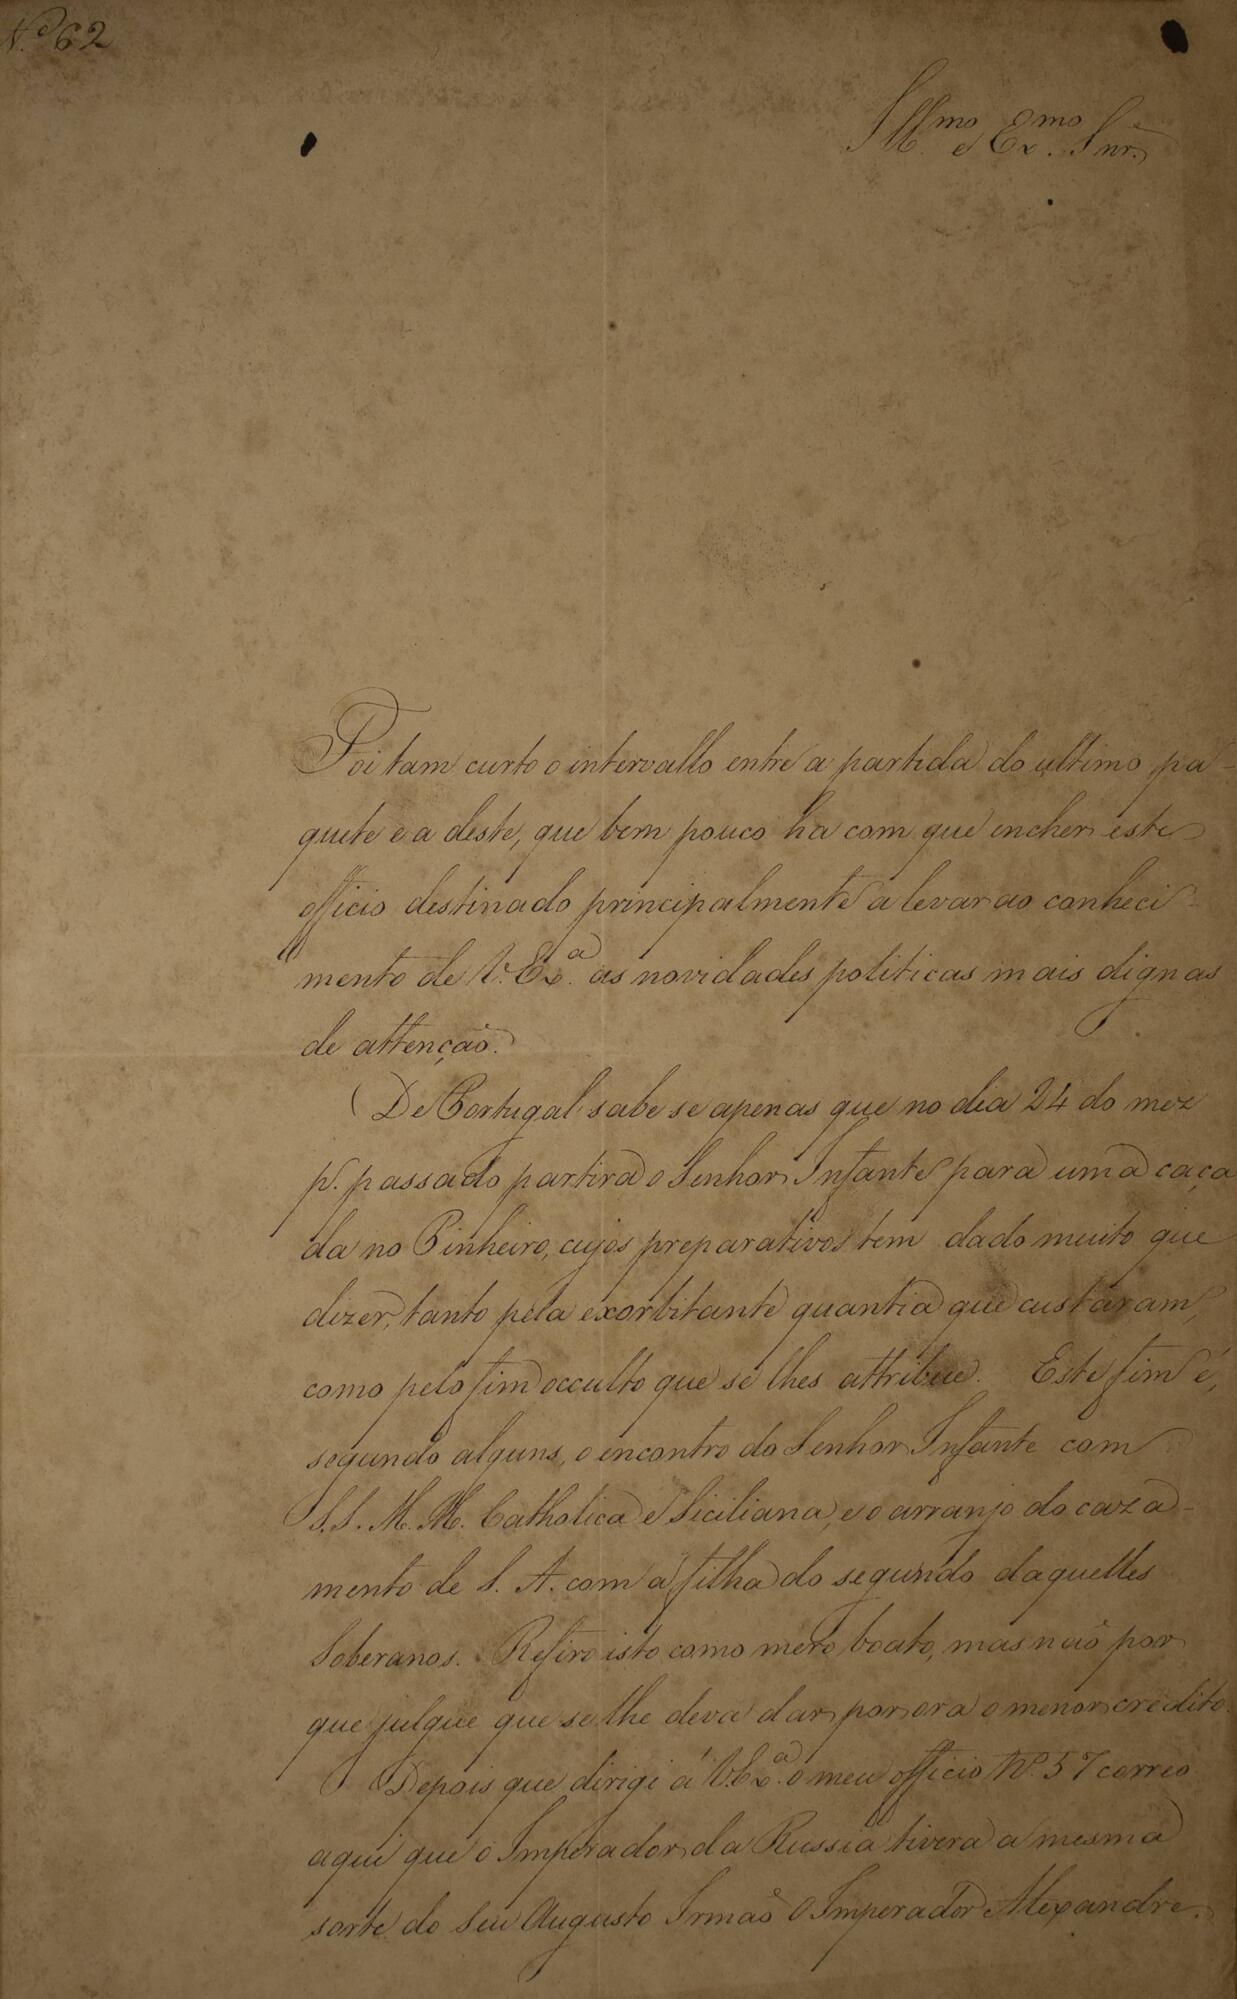 N.º 62
Ill.mo e Ex.mo Snr.
Foi tam curto o intervallo entre a partida do ultimo pa-
quete e a deste, que bem pouco ha com que encher este
officio destinado principalmente a levar ao conheci-
mento de V. Ex.a as novidades politicas mais dignas
de attenção.
De Portugal sabe se apenas que no dia 24 do mez
p. passado partira o Senhor Infante para uma caça
da no Pinheiro, cujos preparativos tem dado muito que
dizer, tanto pela exorbitante quantia que custáram,
como pelo fim occulto que se lhes attribue. Este fim é,
segundo alguns, o encontro do Senhor Infante com
S.S. M.M. Catholica e Siciliana, e o arranjo do caza-
mento de S. A. com a filha do segundo daquelles
Soberanos. Refiro isto como mero boato, mas não por
que julgue que se lhe deva dar por ora o menor credito.
Depois que dirigi á V. Ex.a o meu officio Nº. 57 correo
aqui que o Imperador da Russia tivera a mesma
sorte do Seu Augusto Irmaõ O Imperador Alexandre.